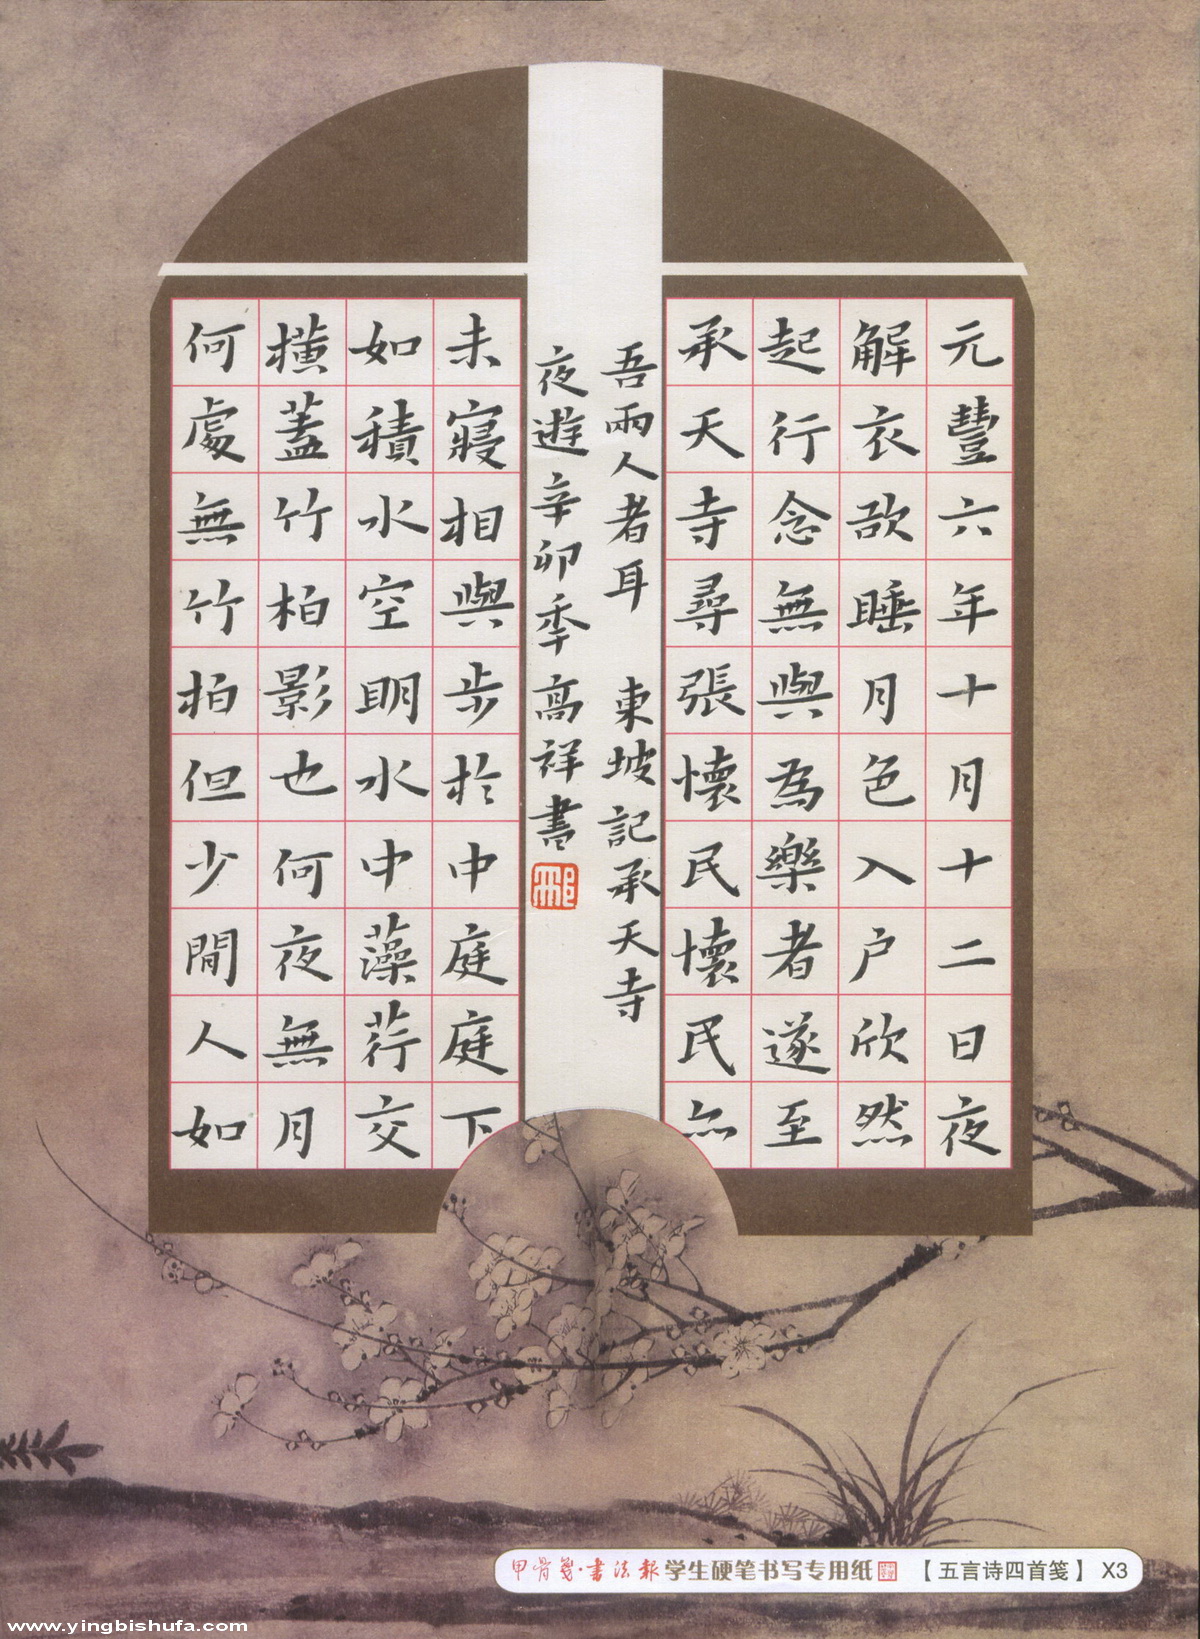 元豐六年十月十二日夜
解衣欲睡月色入户欣然
起行念無與為樂者遂至
承天寺尋張懷民懷民亦
未寢相與步於中庭庭下
如積水空明水中藻荇交
橫蓋竹柏影也何夜無月
何處無竹柏但少閒人如
吾兩人者耳 東坡記承天寺
夜遊辛卯秊高祥書
甲骨箋·書法報 学生硬笔书写专用纸 【五言诗四首笺】 X3
www.yingbishufa.com